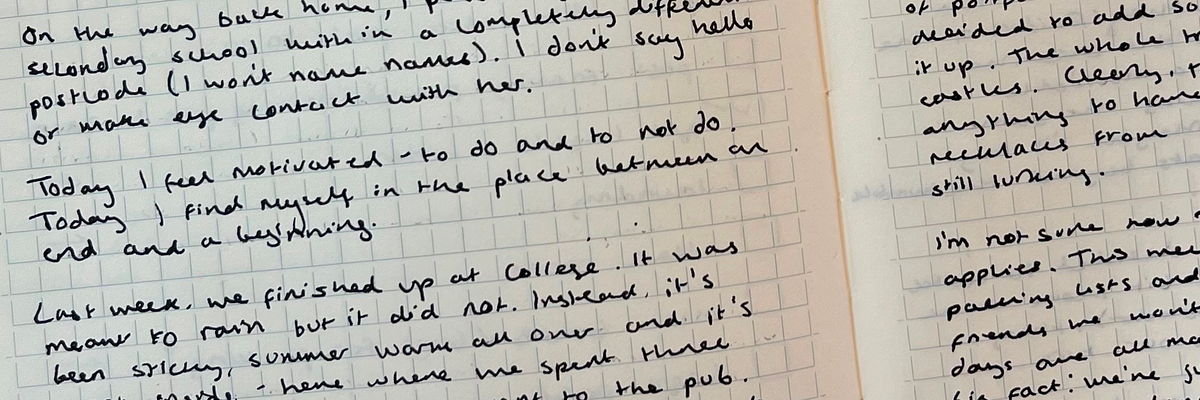 On the way back home, I
secondary school within a completely different
postcode (I won't name names). I don't say hello
or make eye contact with her.
Today I feel motivated - to do and to not do.
Today I find myself in the place between an
end and a beginning.
Last week, we finished up at College. It was
meant to rain but it did not. Instead, it's
been sticky, summer warm all over and it's
- here where we spent three
to the pub.
of
decided to add so
it up. The whole
castles. Clearly,
anything to
necklaces from
still lurking.
I'm not sure how
applies. This
packing lists and
friends we won't
days are all
fact: we're